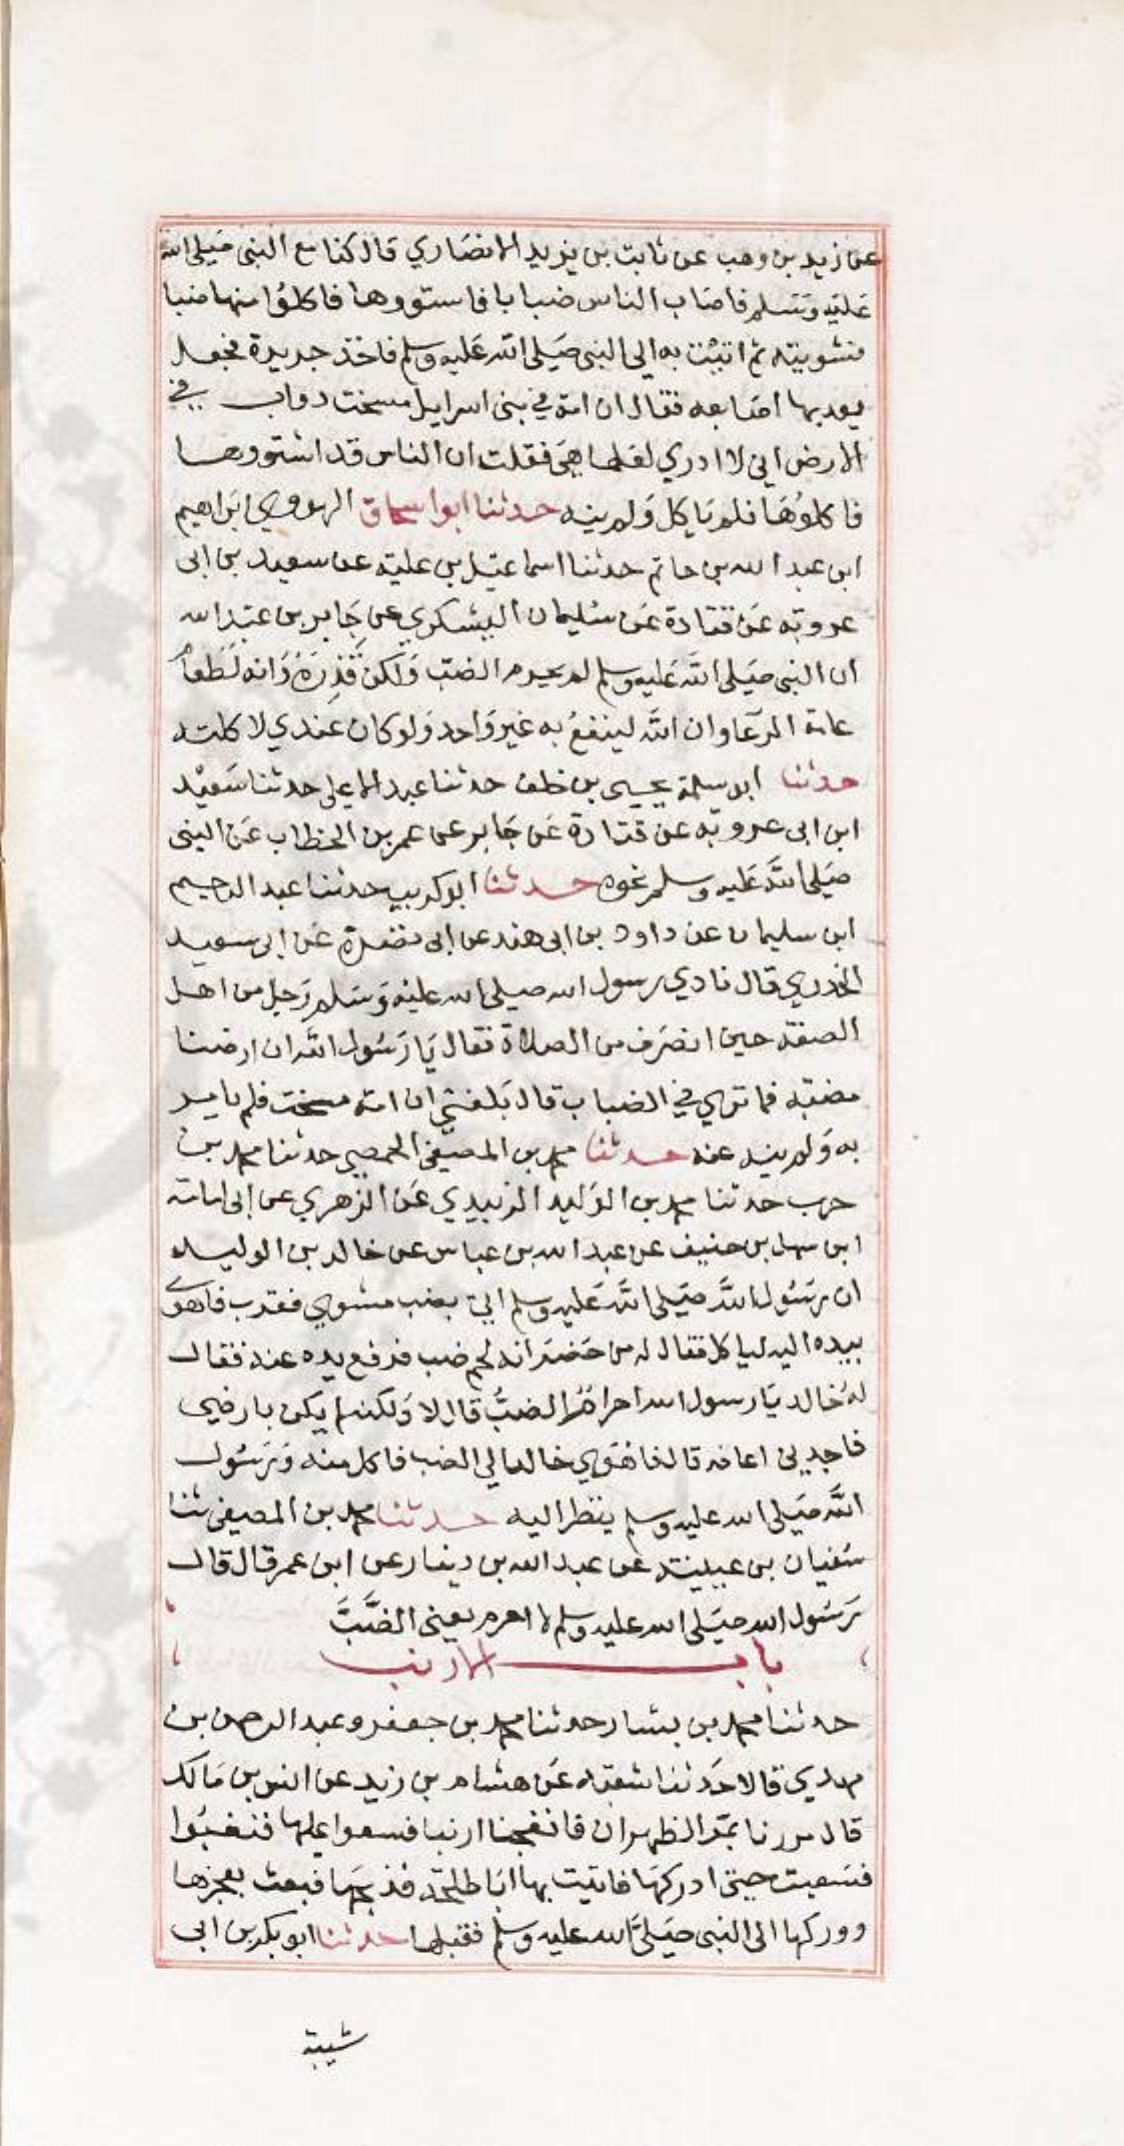 عن زيد بن وهب عن ثابت بن يزيد الانصاري قال كنا مع النبي صَلى الله
عَليه وَسَلم فاصَاب الناس ضبابا فاستووها فاكلوُا منها ضبا
فشويته ثم اتيت به الى النبي صَلى الله عَليه وسلم فاخذ جريدة فجعل
يعد بها اصَابعه فقال ان امة في بني اسرايل مسخت دواب في
الارض اني لا ادري لعَلها هيَ فقلت ان الناس قد اشتووها
فاكلوُهَا فلم يَاكل وَلم ينه حدثنا ابو اسحاق الهروي ابرَاهيم
ابن عبد الله بن حاتم حدثنا اسماعيل بن علية عن سعيد بن ابى
عروبة عَن قتادة عَن سُليمان اليشكري عن جَابر بن عَبد الله
ان النبي صَلى الله عَليه وسلم لم يحرم الضبّ وَلكن قَذِرَهُ وَانه لَطعاُم
عامة الرعَا وان الله لينفعُ به غير وَاحد وَلو كان عندي لاكلته
حدثنا ابو سلمة يحيى بن خلف حدثنا عبد الاعلى حدثنا سَعيْد
ابن ابى عروبة عن قتادة عَن جَابر عن عمر بن الخطاب عَن النبى
صَلى اللَّه عَليه وسلم نحوه حدثنا ابو كريب حدثنا عبد الرحيم
ابن سليمان عن داود بن ابى هند عن ابى نضرة عَن ابى سعيد
الخدري قال نادي رسول الله صلى الله عليْه وَسَلم رَجل من اهل
الصفة حين انصَرف من الصلاة فقال يَا رَسُول الله ان ارضنا
مضبة فما تري في الضباب قال بَلغني ان امة مسخت فلم يامر
به وَلم ينه عنه حدثنا محمد بن المصفى الحمصي حدثنا محمد بن
حرب حدثنا محمد بن الوَليد الزبيدي عَن الزهري عن ابى امامة
ابن سهل بن حنيف عن عبد الله بن عباس عن خالد بن الوليد
ان رسُول اللَّه صَلى اللَّه عَليه وسلم اتي بضب مشوي فقرب فاهوى
بيده اليه لياكل فقال له من حَضرَ انه لحم ضب فرفع يده عنه فقال
لهُ خالد يَا رسول الله احرام الضبُّ قال لا وَلكنه لم يكن بارضي
فاجدني اعافه قال فاهوي خالد الي الضب فاكل منه وَرَسُول
اللَّه صَلى الله عليه وسلم ينظر اليه حدثنا محمد بن المصفى ثنا
سُفيان بن عيينة عن عبد الله بن دينار عن ابن عمر قال قال
رَسُول الله صَلى الله عليه وسلم لا احرم يعنى الضَّبَّ
باب الارنب
حدثنا محمد بن بشار حدثنا محمد بن جعفر وعبد الرحمن بن
مهدي قالا حَدثنا شعبة عَن هشام بن زيد عن انس بن مَالك
قال مررنا بمَر الظهران فانفجنا ارنبا فسعوا عليها فلغبُوا
فسَعيت حتى ادركتهَا فاتيت بها ابَا طلحَة فذبحهَا فبعث بعجزها
ووركها الى النبي صَلى الله عليه وسلم فقبلها حدثنا ابو بكر بن ابى
شيبة